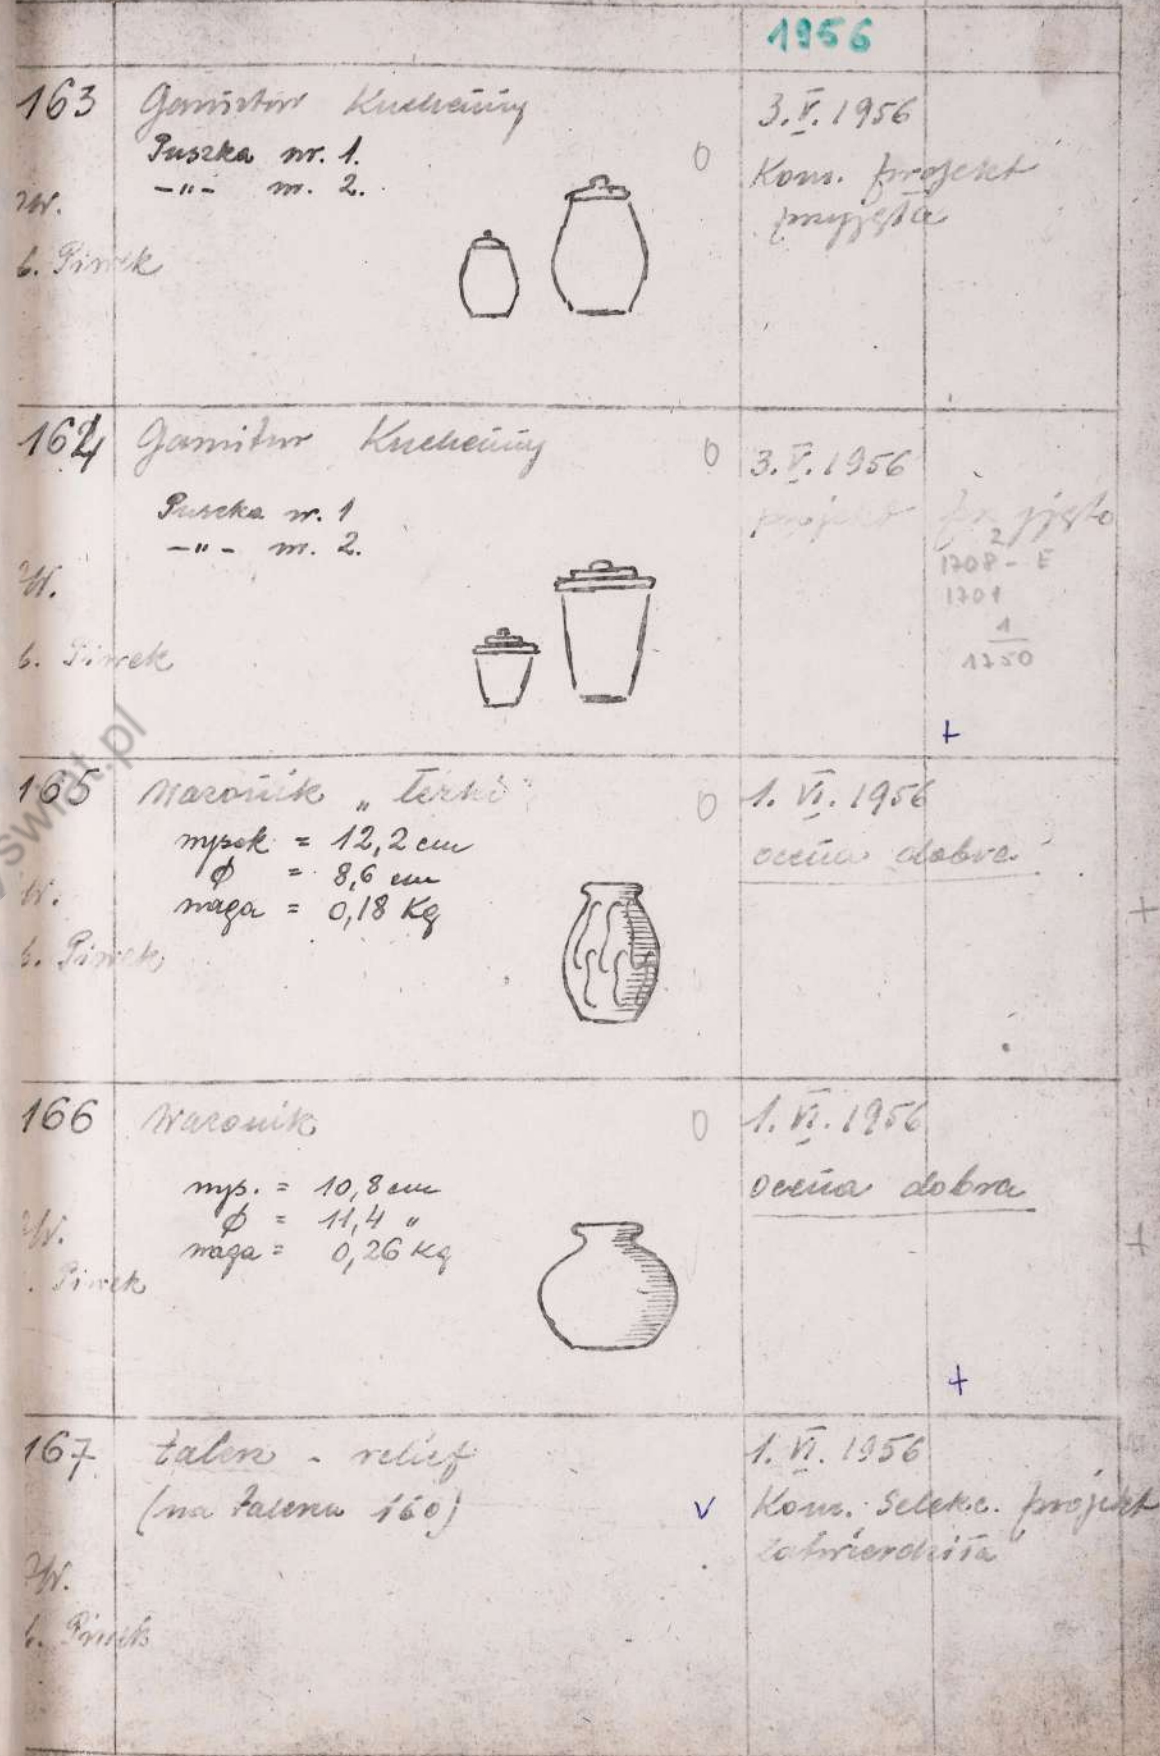 1956
163 Garnitur Kuchenny
Puszka nr. 1.
-"- nr. 2.
W.
b. Piwek
O
3.V.1956
Kom. projekt
przyjęła
164 Garnitur Kuchenny
Puszka nr. 1
-"- nr. 2.
W.
b. Piwek
O
3.V.1956
projekt przyjęto
2
1708 - E
1701
1
1750
+
165 Wazonik „
wysok = 12,2 cm
ϕ = 8,6 cm
waga = 0,18 Kg
W.
b. Piwek
O
1. VI. 1956
ocena dobra
+
166 Wazonik
wys. = 10,8 cm
ϕ = 11,4 "
waga = 0,26 Kg
W.
. Piwek
O
1. VI. 1956
ocena dobra
+
+
167 talerz - relief
(na talerzu 160)
W.
b. Piwek
v
1. VI. 1956
Kom. Selekc. projekt
zatwierdziła
swiat.pl